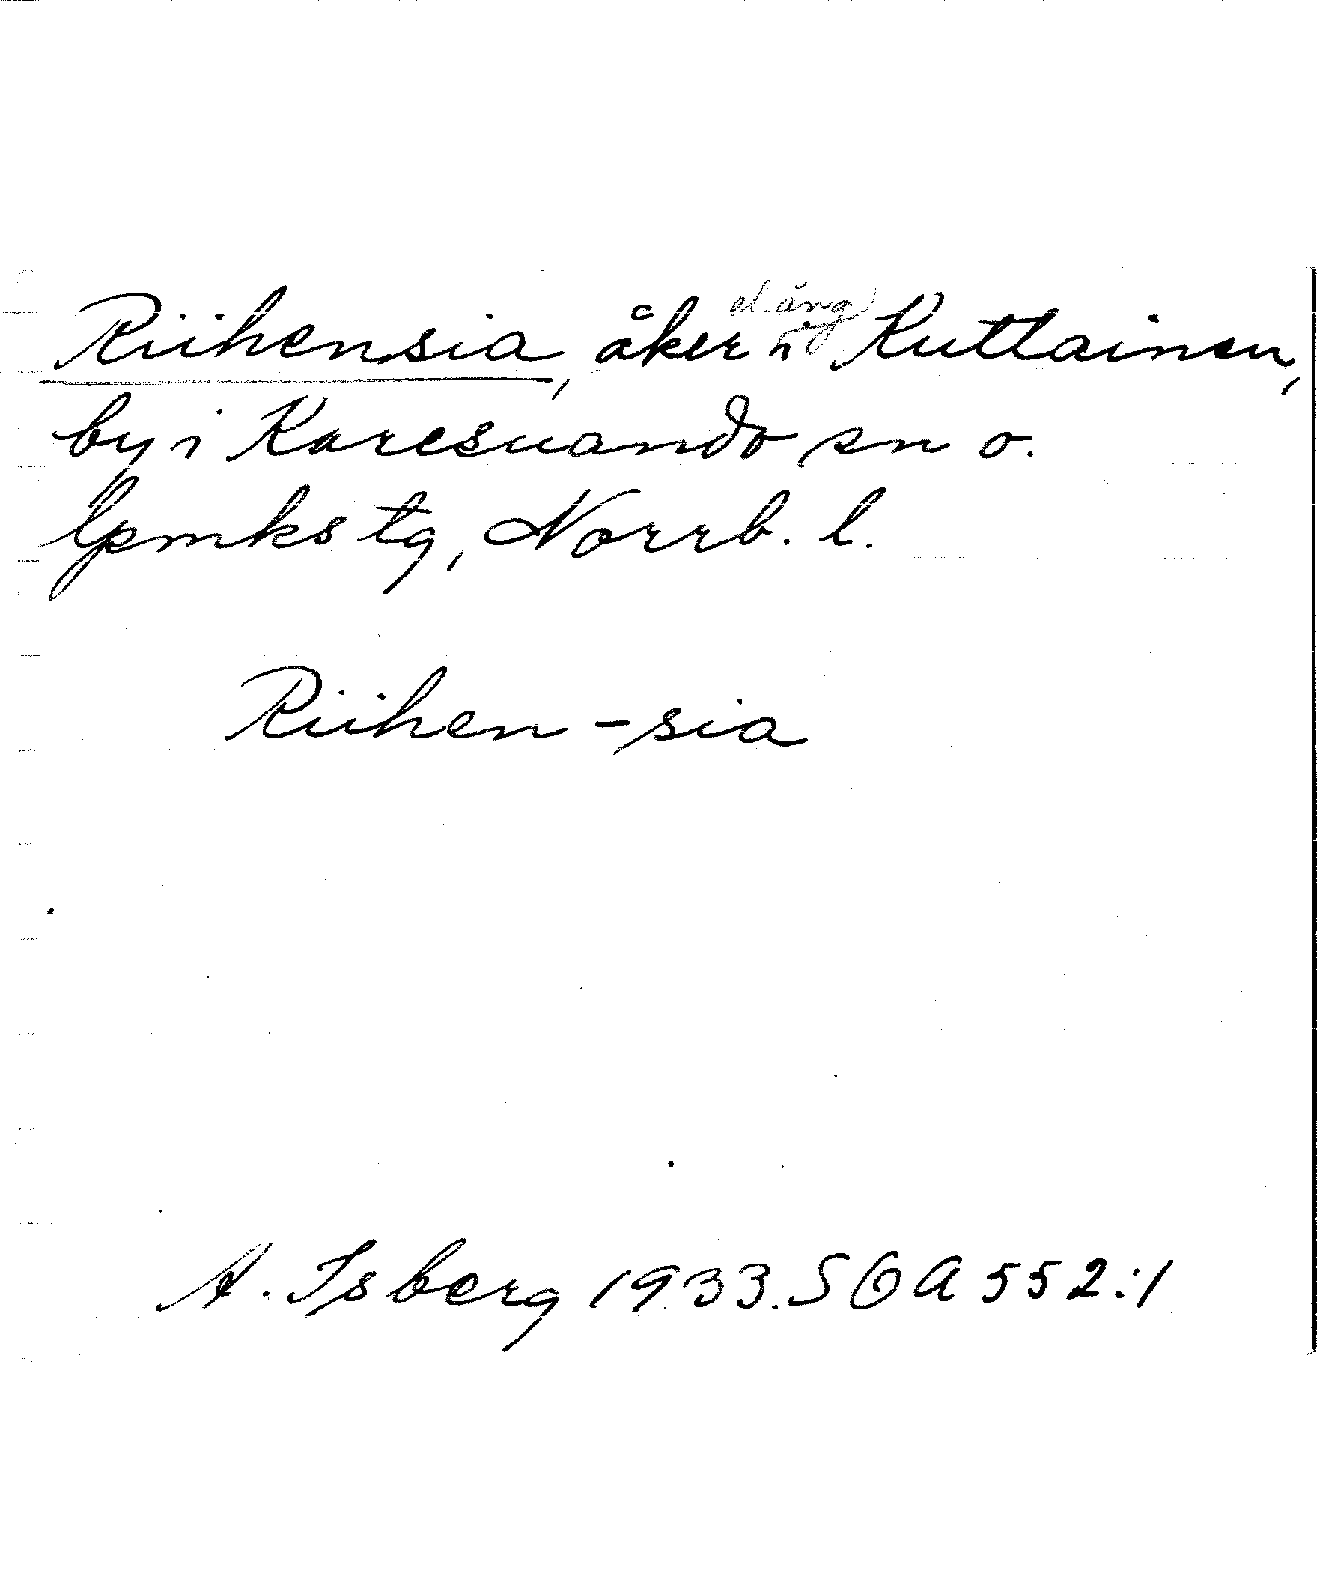 Riihensia, åker el. äng på Kuttainen,
by i Karesuando sn o.
lpmks tg, Norrb. l.
Riihen-sia
A. Isberg 1933. SOA 552:1